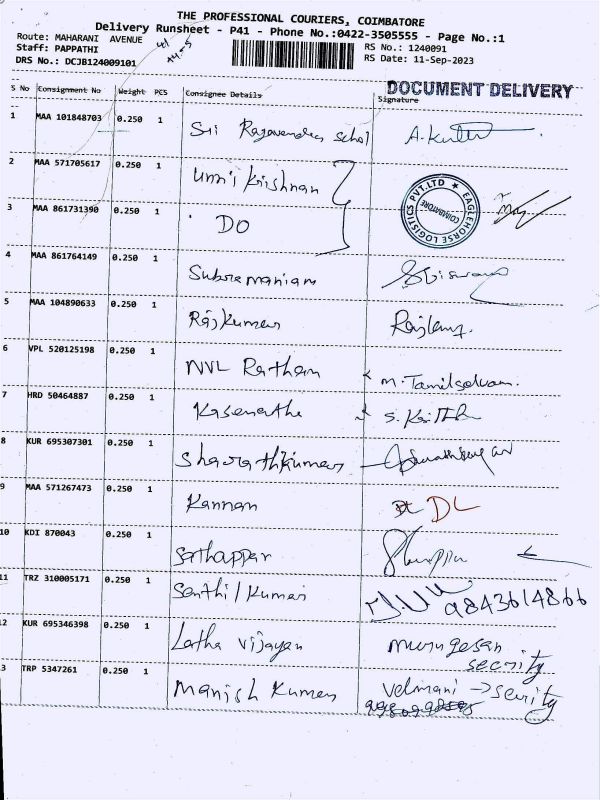 THE PROFESSIONAL COURIERS, COIMBATORE
Delivery Runsheet - P41 - Phone No.:0422-3505555 - Page No.:1
Route: MAHARANI AVENUE
RS No.: 1240091
Staff: PAPPATHI
RS Date: 11-Sep-2023
DRS No.: DCJB124009101
DOCUMENT DELIVERY
S No Consignment No Weight PCS Consignee Details Signature
1 MAA 101848703 0.250 1 Sri Ragavendra School
2 MAA 571705617 0.250 1 Unni Krishnan
EAGLEHORSE LOGISTICS PVT.LTD ★ COIMBATORE
3 MAA 861731390 0.250 1 DO
4 MAA 861764149 0.250 1 Subramaniam
5 MAA 104890633 0.250 1 Rajkumar
6 VPL 520125198 0.250 1 NVL Ratham M. Tamilselvam.
7 HRD 50464887 0.250 1 Kasenatha
8 KUR 695307301 0.250 1 Sharathkumar
9 MAA 571267473 0.250 1 Kannan DL
10 KDI 870043 0.250 1 Sathappar
11 TRZ 310005171 0.250 1 Senthil Kumar 9843614866
12 KUR 695346398 0.250 1 Latha Vijayan murugesan secrity
13 TRP 5347261 0.250 1 Manish Kumar velmani → seurity